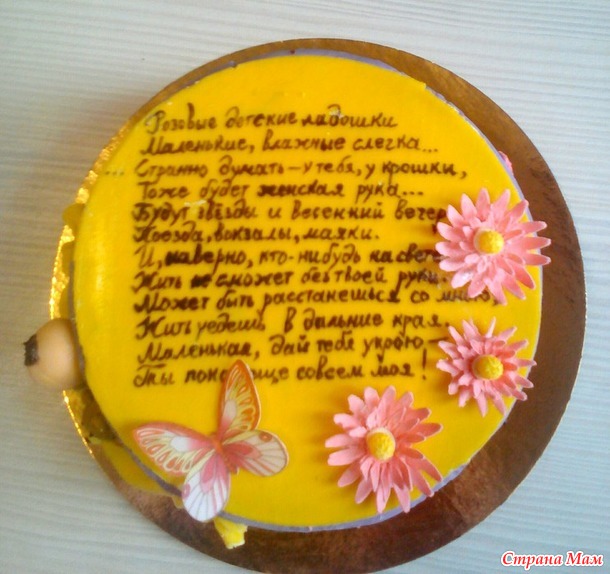 Розовые детские ладошки
Маленькие, влажные слегка...
... Странно думать – у тебя, у крошки,
Тоже будет женская рука...
Будут звёзды и весенний вечер
Поезда, вокзалы, маяки.
И, наверно, кто-нибудь на свете
Жить не сможет без твоей руки
Может быть расстанешься со мною,
Жить уедешь в дальние края
Маленькая, дай тебя укрою
Ты пока еще совсем моя!
Страна Мам